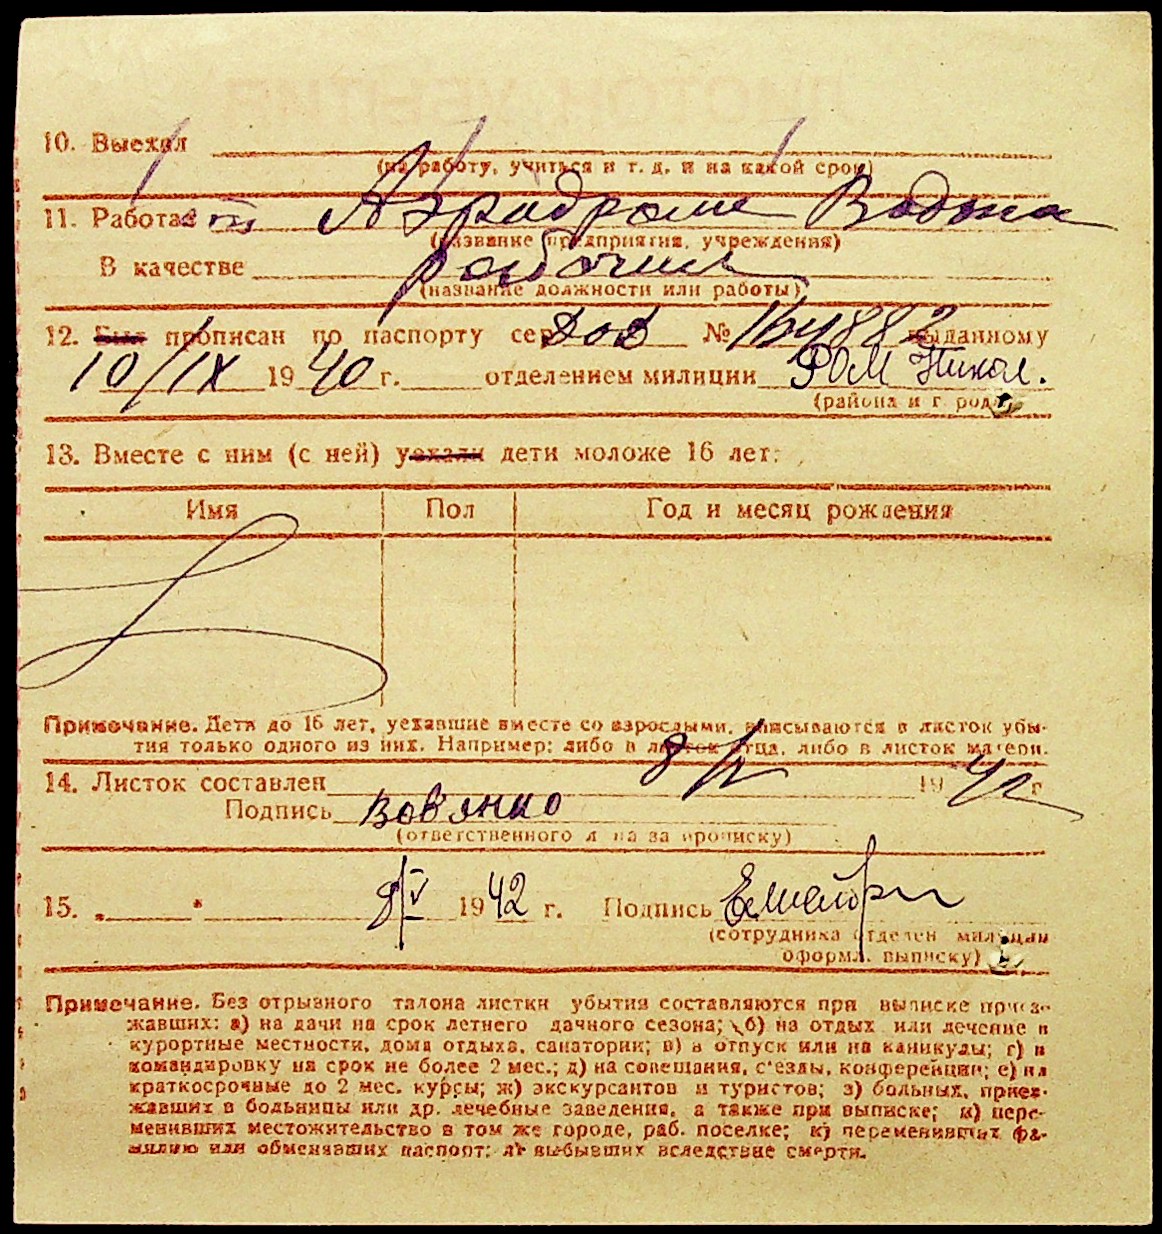 ЛИСТОК УБЫТИЯ
10. Выехал
(на работу, учиться и т. д. и на какой срок)
11. Работает Аэродроме
(название предприятия, учреждения)
В качестве рабочий
(название должности или работы)
12. Был прописан по паспорту сер № выданному
10/IX 1940 г. отделением милиции РОМ
(района и города)
13. Вместе с ним (с ней) уехали дети моложе 16 лет:
Имя Пол Год и месяц рождения
Примечание. Дети до 16 лет, уехавшие вместе со взрослыми, вписываются в листок убы-
тия только одного из них. Например: либо в листок отца, либо в листок матери.
14. Листок составлен 8/V 1942 г
Подпись
(ответственного л на за прописку)
15. „ " 8/V 1942 г. Подпись
(сотрудника отделен милиции
оформл. выписку)
Примечание. Без отрывного талона листки убытия составляются при выписке приез-
жавших: а) на дачи на срок летнего дачного сезона; б) на отдых или лечение в
курортные местности, дома отдыха, санатории; в) в отпуск или на каникулы; г) в
командировку на срок не более 2 мес.; д) на совещания, с'езды, конференции; е) на
краткосрочные до 2 мес. курсы; ж) экскурсантов и туристов; з) больных, приез-
жавших в больницы или др. лечебные заведения, а также при выписке; и) пере-
менивших местожительство в том же городе, раб. поселке; к) переменивших фа-
милию или обменявших паспорт; л) выбывших вследствие смерти.